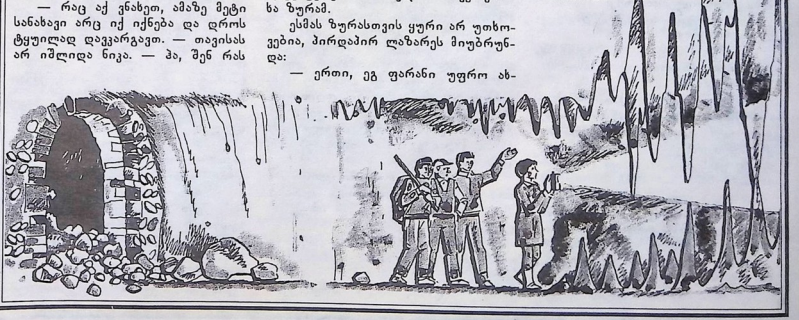 — რაც აქ ვნახეთ, ამაზე მეტი
სანახავი არც იქ იქნება და დროს
ტყუილად დავკარგავთ. — თავისას
არ იშლიდა ნიკა. — ჰა, შენ რას
ხა ზურამ.
ესმას ზურასთვის ყური არ უთხო-
ვებია, პირდაპირ ლაზარეს მიუბრუნ-
და:
— ერთი, ეგ ფარანი უფრო ახ-